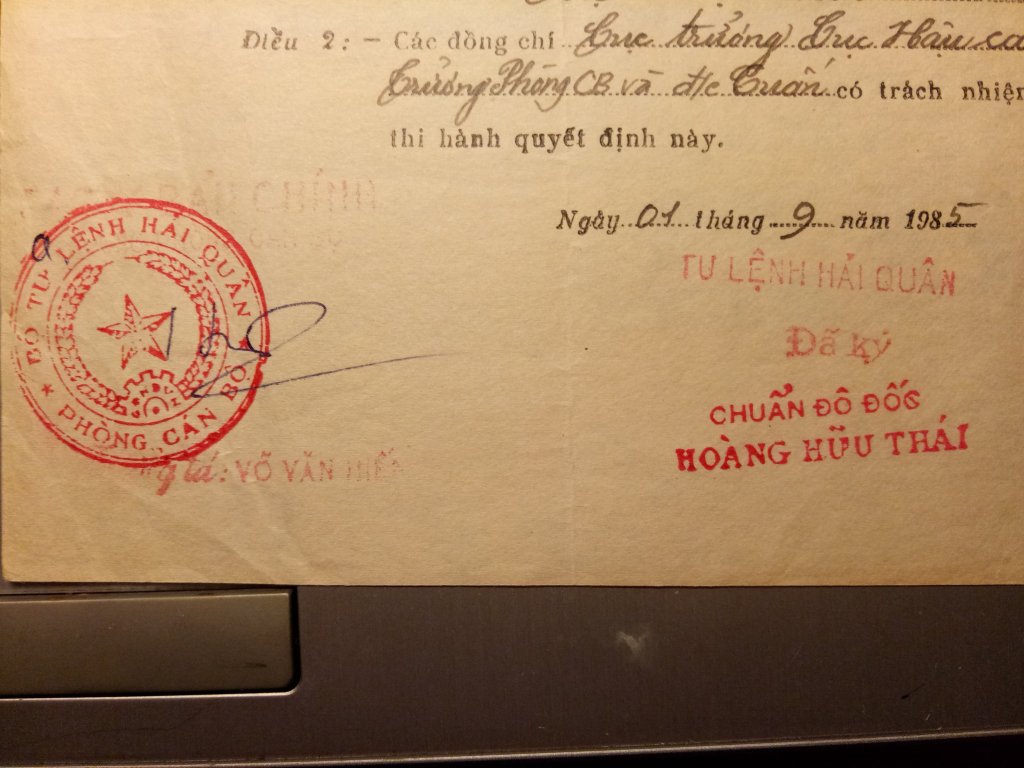 Điều 2: - Các đồng chí Cục trưởng Cục Hậu cầ
Trưởng Phòng CB và đ/c Tuấn có trách nhiệm
thi hành quyết định này.
Ngày 01 tháng 9 năm 1985
TƯ LỆNH HẢI QUÂN
Đã ký
CHUẨN ĐÔ ĐỐC
HOÀNG HỮU THÁI
BẢN CHÍNH
BỘ TƯ LỆNH HẢI QUÂN
★ PHÒNG CÁN BỘ ★
tá: VÕ VĂN HIẾ